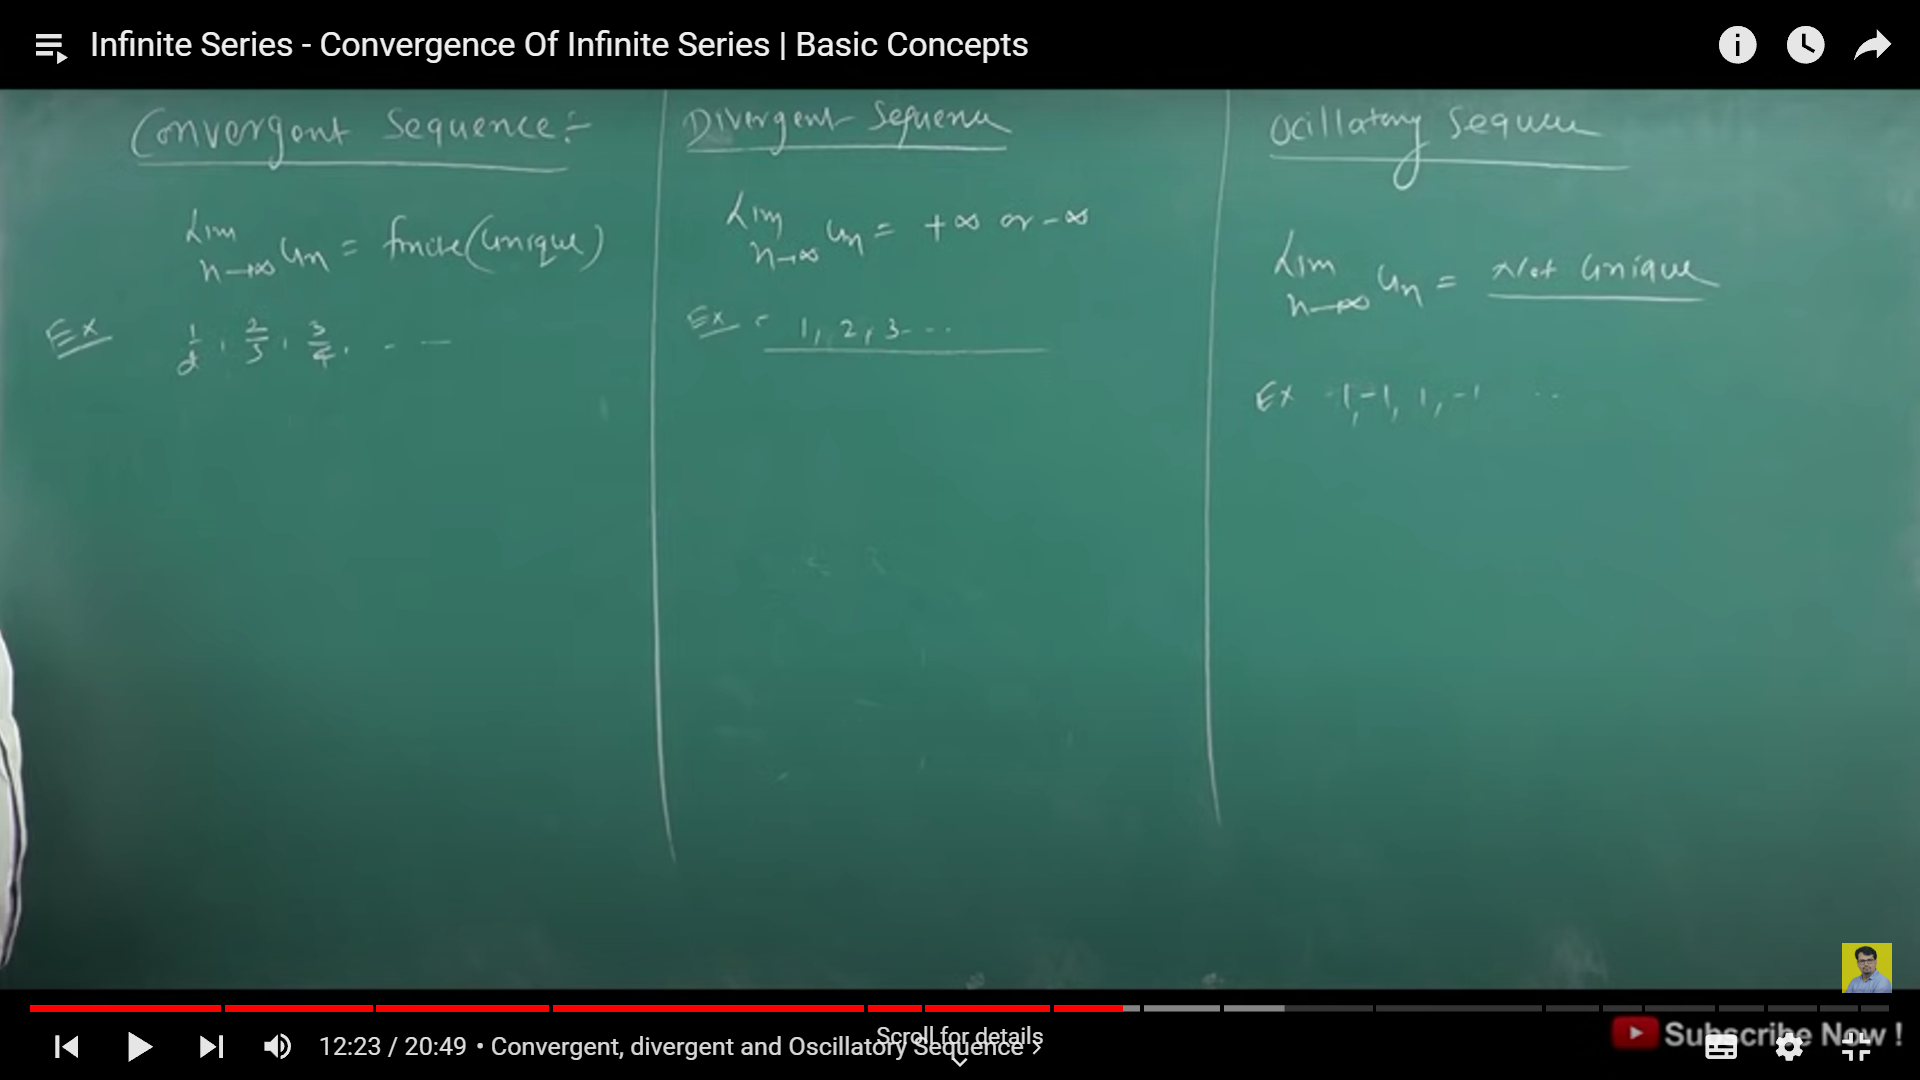 Infinite Series - Convergence Of Infinite Series | Basic Concepts
Convergent Sequence:-
Lim
n→∞ Un = finite (Unique)
Ex 1/2, 2/3, 3/4, - —
Divergent Sequence
Lim
n→∞ Un = +∞ or -∞
Ex - 1, 2, 3 - - -
Ocillatory Sequence
Lim
n→∞ Un = Not Unique
Ex -1, -1, 1, -1 ..
12:23 / 20:49 • Convergent, divergent and Oscillatory Sequence
Scroll for details
Subscribe Now !